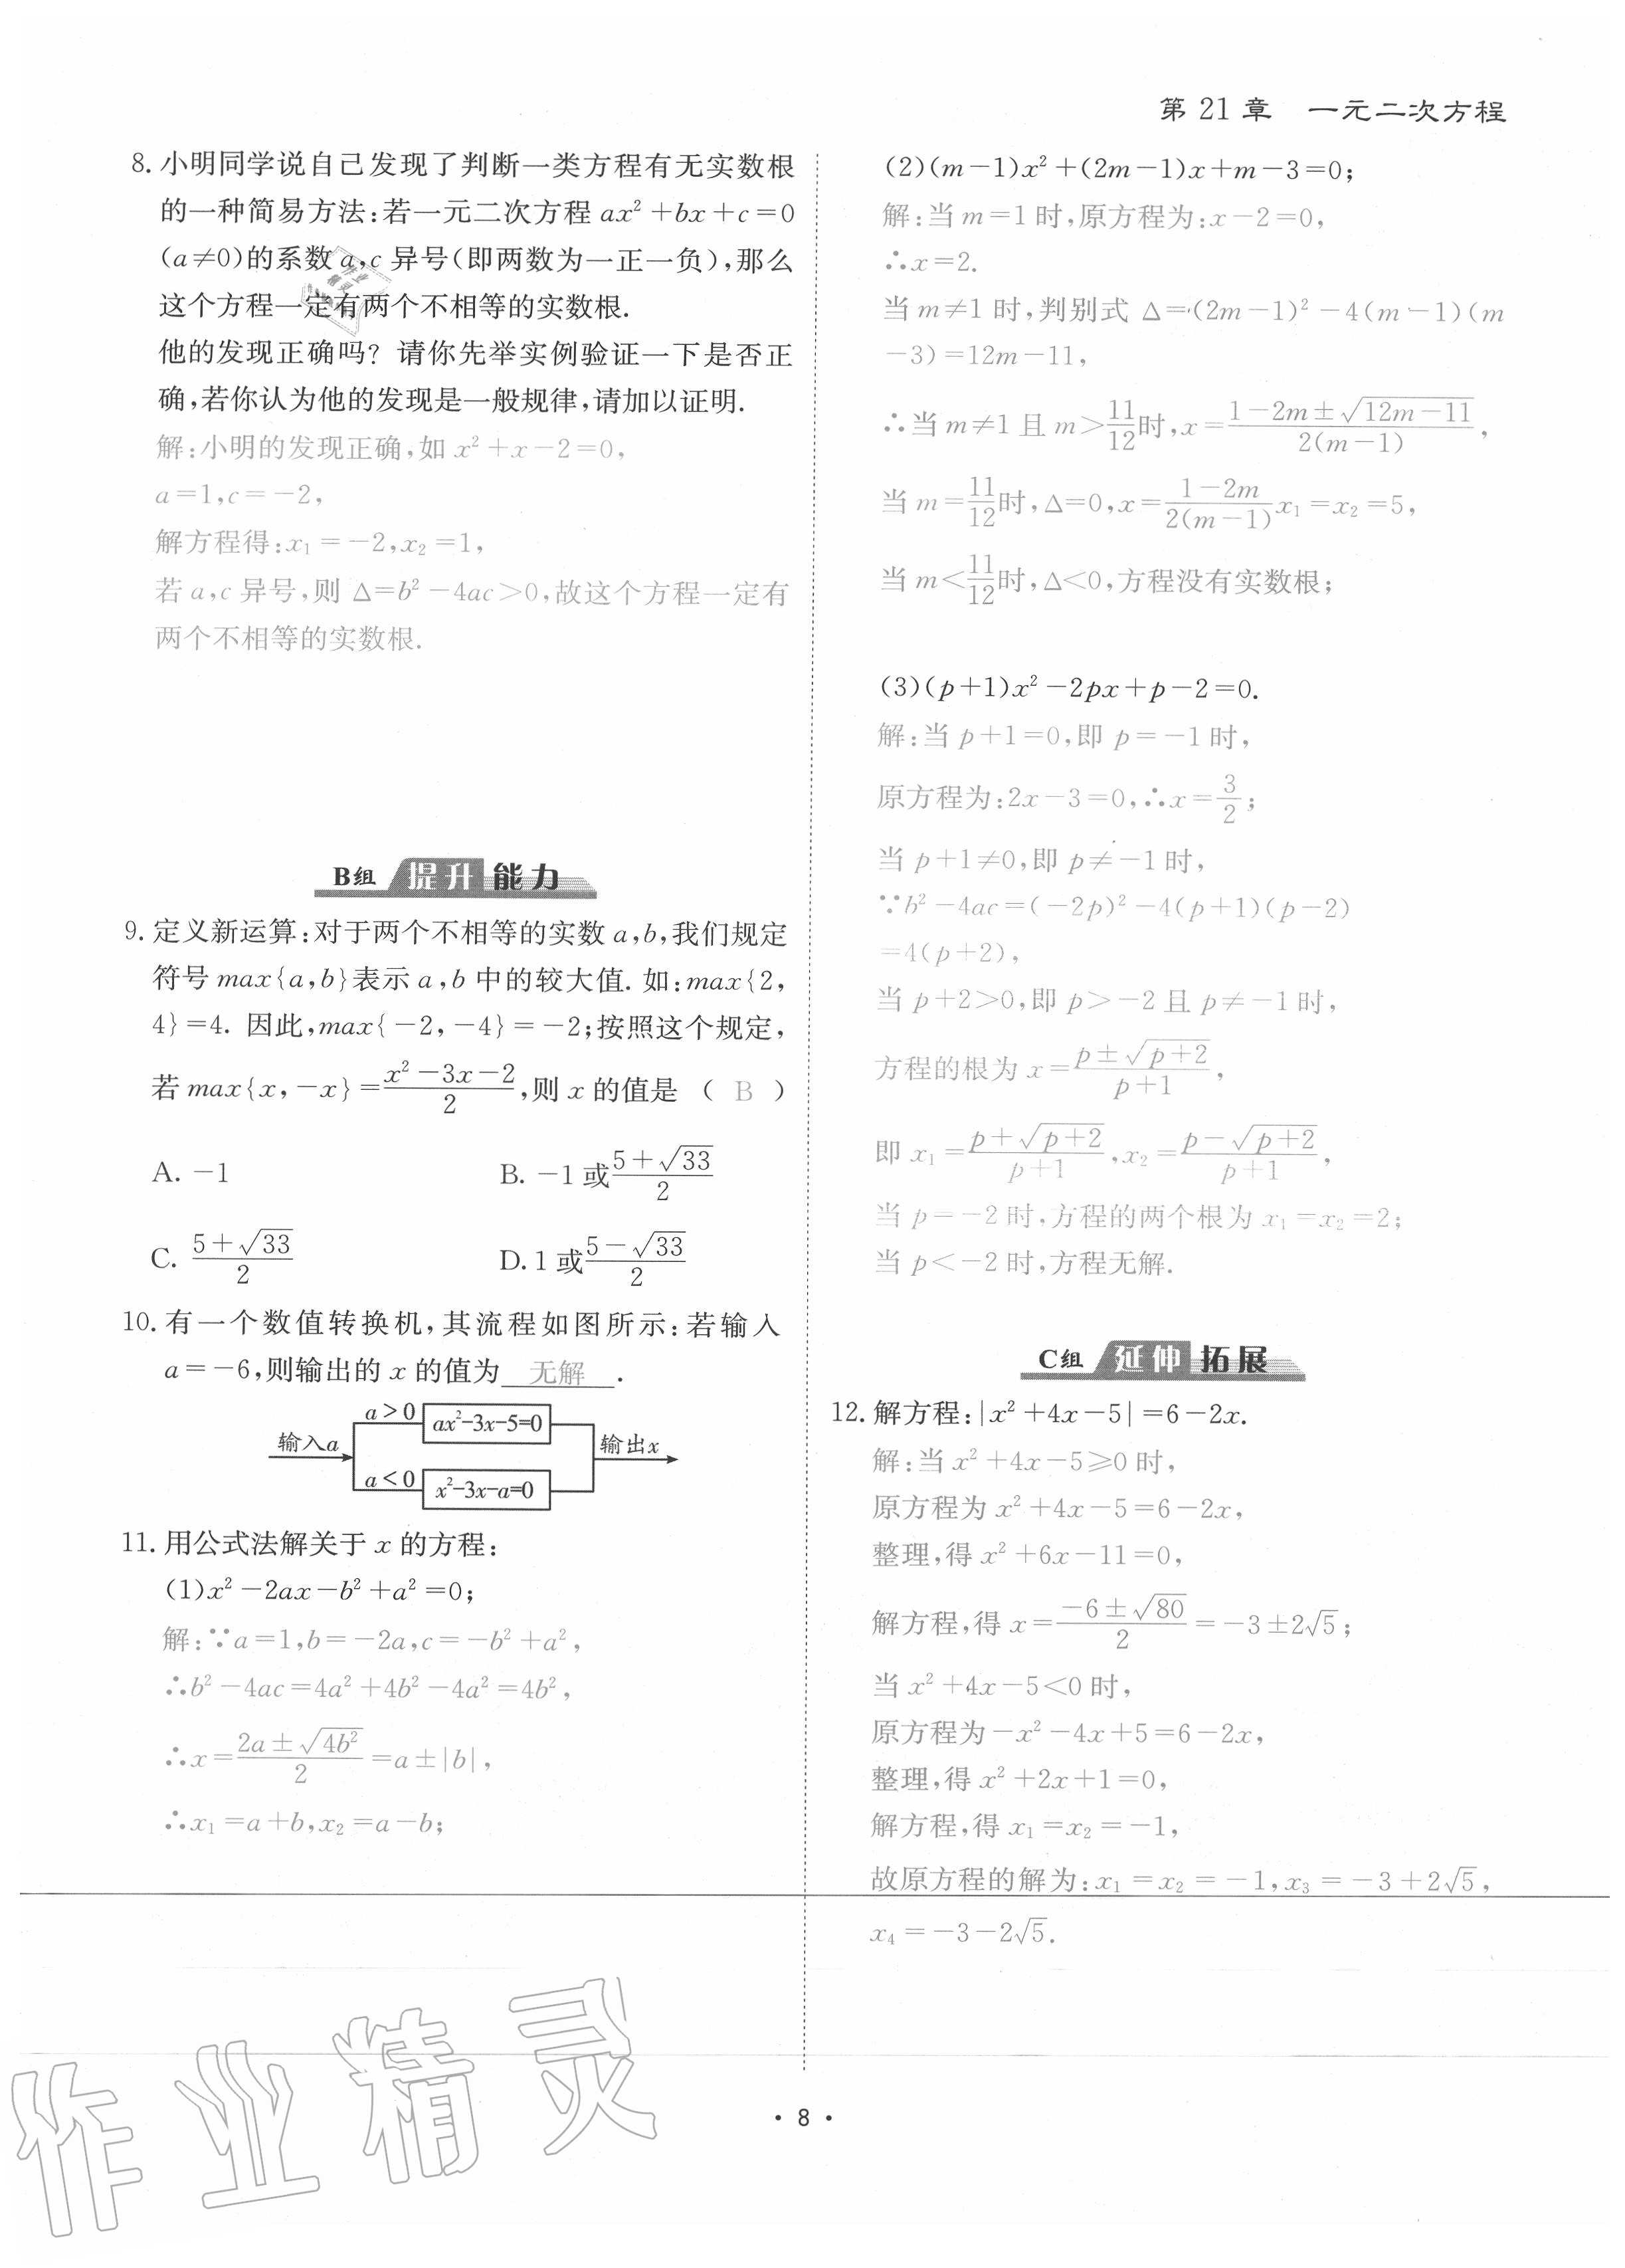 第 21 章 一元二次方程
8. 小明同学说自己发现了判断一类方程有无实数根
的一种简易方法:若一元二次方程 ax²+bx+c=0
(a≠0)的系数 a,c 异号(即两数为一正一负),那么
这个方程一定有两个不相等的实数根.
他的发现正确吗? 请你先举实例验证一下是否正
确,若你认为他的发现是一般规律,请加以证明.
解:小明的发现正确,如 x²+x-2=0,
a=1,c=-2,
解方程得:x₁=-2,x₂=1,
若 a,c 异号,则 Δ=b²-4ac>0,故这个方程一定有
两个不相等的实数根.
B组 提升能力
9. 定义新运算:对于两个不相等的实数 a,b,我们规定
符号 max{a,b}表示 a,b 中的较大值. 如:max{2,
4}=4. 因此,max{-2,-4}=-2;按照这个规定,
若 max{x,-x}=(x²-3x-2)/2,则 x 的值是 ( B )
A. -1 B. -1 或 (5+√33)/2
C. (5+√33)/2 D. 1 或 (5-√33)/2
10. 有一个数值转换机,其流程如图所示:若输入
a=-6,则输出的 x 的值为 无解 .
输入a a>0 ax²-3x-5=0 输出x
a<0 x²-3x-a=0
11. 用公式法解关于 x 的方程:
(1)x²-2ax-b²+a²=0;
解:∵a=1,b=-2a,c=-b²+a²,
∴b²-4ac=4a²+4b²-4a²=4b²,
∴x=(2a±√(4b²))/2=a±|b|,
∴x₁=a+b,x₂=a-b;
(2)(m-1)x²+(2m-1)x+m-3=0;
解:当 m=1 时,原方程为:x-2=0,
∴x=2.
当 m≠1 时,判别式 Δ=(2m-1)²-4(m-1)(m
-3)=12m-11,
∴当 m≠1 且 m>11/12时,x=(1-2m±√(12m-11))/(2(m-1)),
当 m=11/12时,Δ=0,x=(1-2m)/(2(m-1))x₁=x₂=5,
当 m<11/12时,Δ<0,方程没有实数根;
(3)(p+1)x²-2px+p-2=0.
解:当 p+1=0,即 p=-1 时,
原方程为:2x-3=0,∴x=3/2;
当 p+1≠0,即 p≠-1 时,
∵b²-4ac=(-2p)²-4(p+1)(p-2)
=4(p+2),
当 p+2>0,即 p>-2 且 p≠-1 时,
方程的根为 x=(p±√(p+2))/(p+1),
即 x₁=(p+√(p+2))/(p+1),x₂=(p-√(p+2))/(p+1),
当 p=-2 时,方程的两个根为 x₁=x₂=2;
当 p<-2 时,方程无解.
C组 延伸拓展
12. 解方程:|x²+4x-5|=6-2x.
解:当 x²+4x-5≥0 时,
原方程为 x²+4x-5=6-2x,
整理,得 x²+6x-11=0,
解方程,得 x=(-6±√80)/2=-3±2√5;
当 x²+4x-5<0 时,
原方程为-x²-4x+5=6-2x,
整理,得 x²+2x+1=0,
解方程,得 x₁=x₂=-1,
故原方程的解为:x₁=x₂=-1,x₃=-3+2√5,
x₄=-3-2√5.
· 8 ·
作业精灵